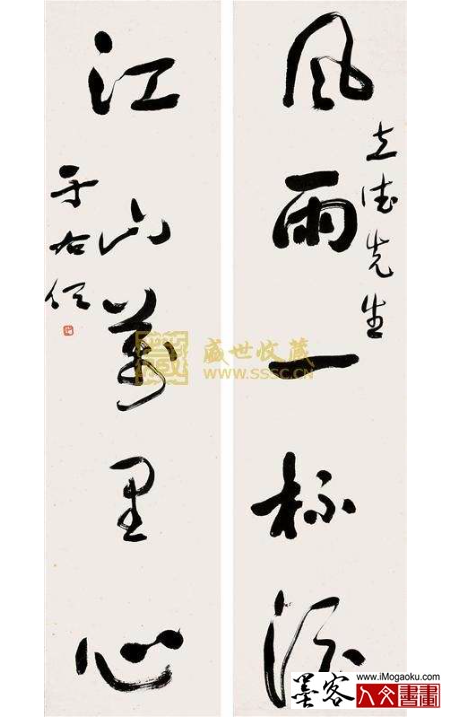 風雨一杯酒
立德先生
江山萬里心
于右任
盛世收藏
WWW.SSSC.CN
www.iMogaoku.com
墨客人文書畫